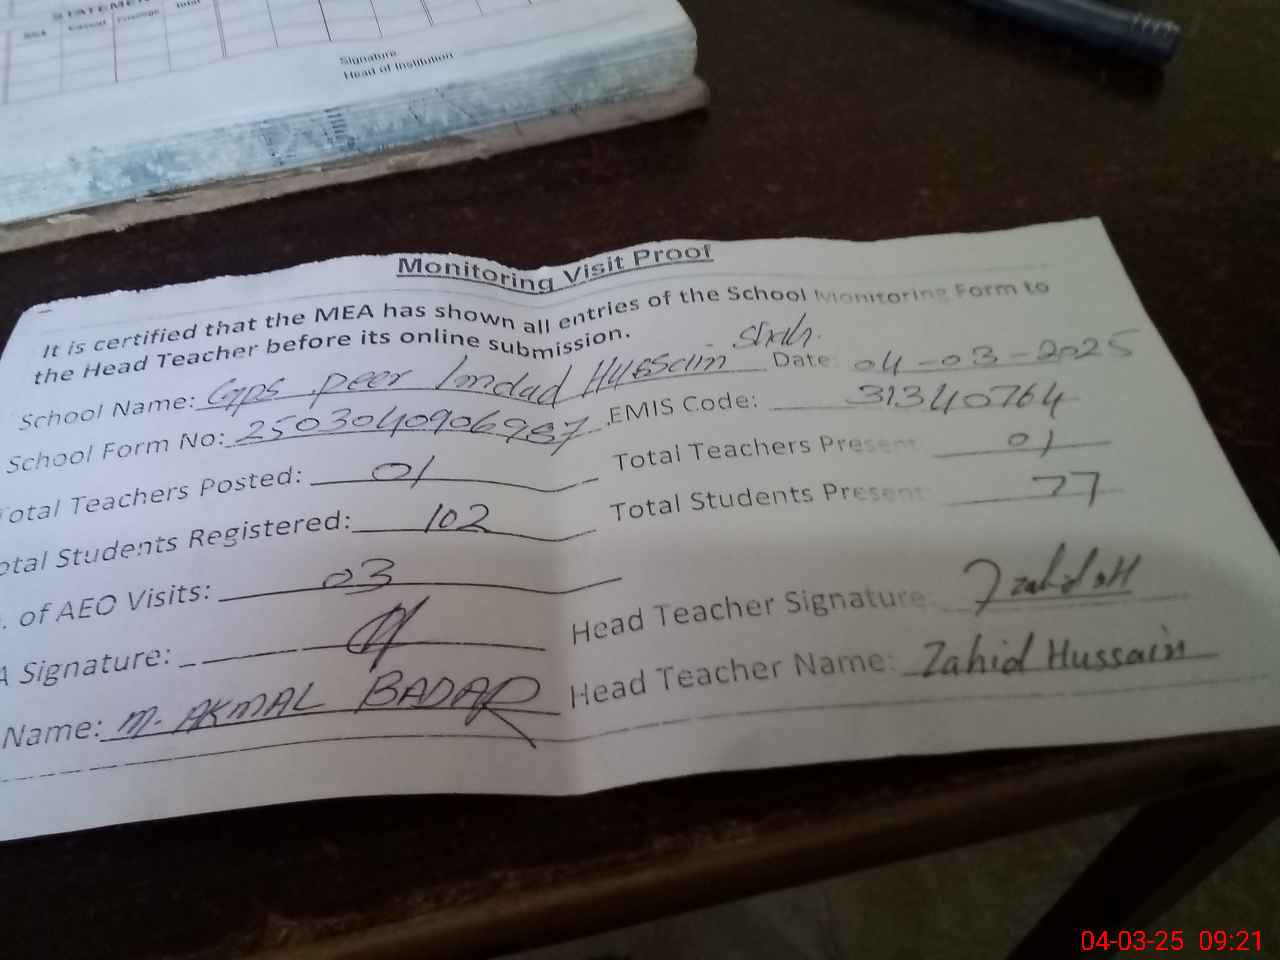 STATEMEN
Casual Privilege Total
Signature
Head of Institution
Monitoring Visit Proof
It is certified that the MEA has shown all entries of the School Monitoring Form to
the Head Teacher before its online submission.
School Name: Gps peer Imdad Hussain Date: 04-03-2025
School Form No: 2503040906987 EMIS Code: 31340764
otal Teachers Posted: 01 Total Teachers Present: 01
otal Students Registered: 102 Total Students Present: 77
. of AEO Visits: 03
A Signature: Head Teacher Signature: Zahid H
Name: M. AKMAL BADAR Head Teacher Name: Zahid Hussain
04-03-25 09:21